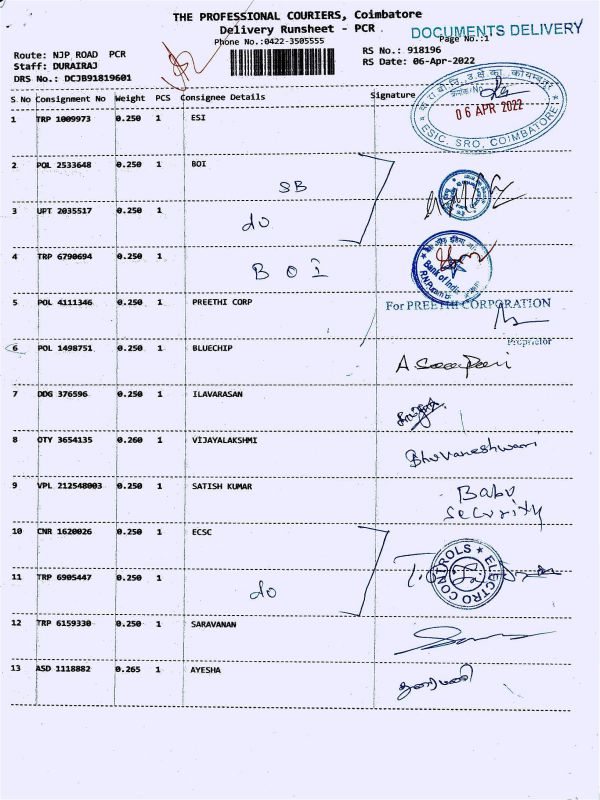 THE PROFESSIONAL COURIERS, Coimbatore
Delivery Runsheet - PCR
DOCUMENTS DELIVERY
Phone No.:0422-3505555
Page No.:1
Route: NJP ROAD PCR
RS No.: 918196
Staff: DURAIRAJ
RS Date: 06-Apr-2022
DRS No.: DCJB91819601
S No Consignment No Weight PCS Consignee Details Signature
06 APR 2022
ESIC, SRO, COIMBATORE
1 TRP 1009973 0.250 1 ESI
2 POL 2533648 0.250 1 BOI
SB
3 UPT 2035517 0.250 1
do
4 TRP 6790694 0.250 1
BOI
Bank of India
5 POL 4111346 0.250 1 PREETHI CORP
For PREETHI CORPORATION
Proprietor
6 POL 1498751 0.250 1 BLUECHIP
7 DDG 376596 0.250 1 ILAVARASAN
8 OTY 3654135 0.260 1 VIJAYALAKSHMI
Bhuvaneshwari
9 VPL 212548003 0.250 1 SATISH KUMAR
Babu
Security
10 CNR 1620026 0.250 1 ECSC
ELECTRO CONTROLS
11 TRP 6905447 0.250 1
do
12 TRP 6159330 0.250 1 SARAVANAN
13 ASD 1118882 0.265 1 AYESHA